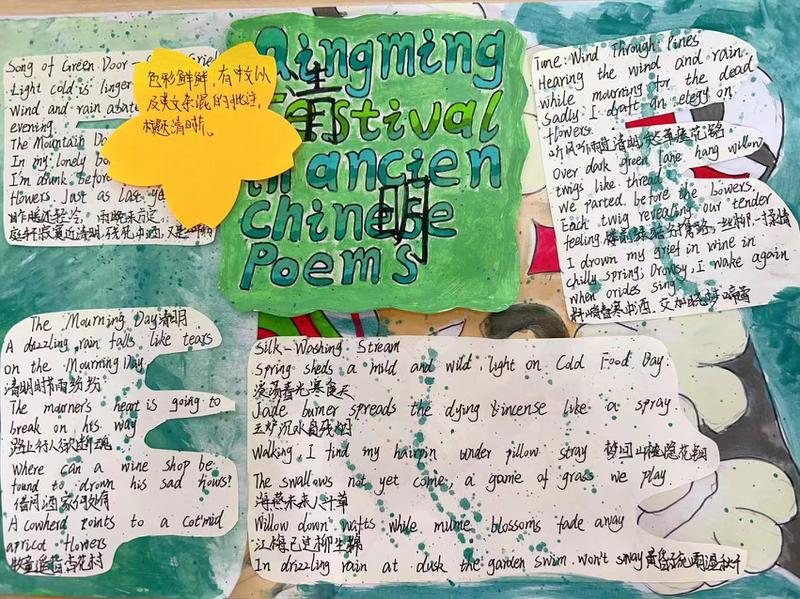 Qingming
清
Festival
in ancien
明
chinese
Poems
色彩鲜鲜，有中文以
及英文
标题清晰。
Song of Green Door
Light cold is linger
Wind and rain abate
evening.
The Mountain Do
In my lonely bo
I'm drunk before
flowers. Just as last ye
昨晚还轻冷，雨
庭轩寂寞近清明，残花中酒，又是
The Mourning Day清明
A drizzling rain falls like tears
on the Mourning Day
清明时节雨纷纷
The mourner's heart is going to
break on his way
路上行人欲断魂
Where can a wine shop be
found to drown his sad hours?
借问酒家何处有
A cowherd points to a cot'mid
apricot flowers
牧童遥指杏花村
Tune: Wind Through Pines
Hearing the wind and rain
while mourning for the dead
Sadly I draft an elegy on
flowers.
听风听雨过清明，愁草瘗花铭
Over dark green lane hang willow
twigs like thread
We parted before the bowers.
Each twig revealing our tender
feeling.楼前绿暗分携路，一丝柳，一寸柔情
I drown my grief in wine in
chilly spring; Drowsy, I wake again
when orides sing
料峭春寒中酒，交加晓梦啼莺
Silk-Washing Stream
Spring sheds a mild and wild light on Cold Food Day.
淡荡春光寒食天
Jade burner spreads the dying incense like a spray
玉炉沉水袅残烟
Walking, I find my hairpin under pillow stray 梦回山枕隐花钿
The swallows not yet come, a game of grass we play
海燕未来人斗草
Willow down wafts while mume blossoms fade away
江梅已过柳生绵
In drizzling rain at dusk the garden swim won't sway 黄昏疏雨湿秋千